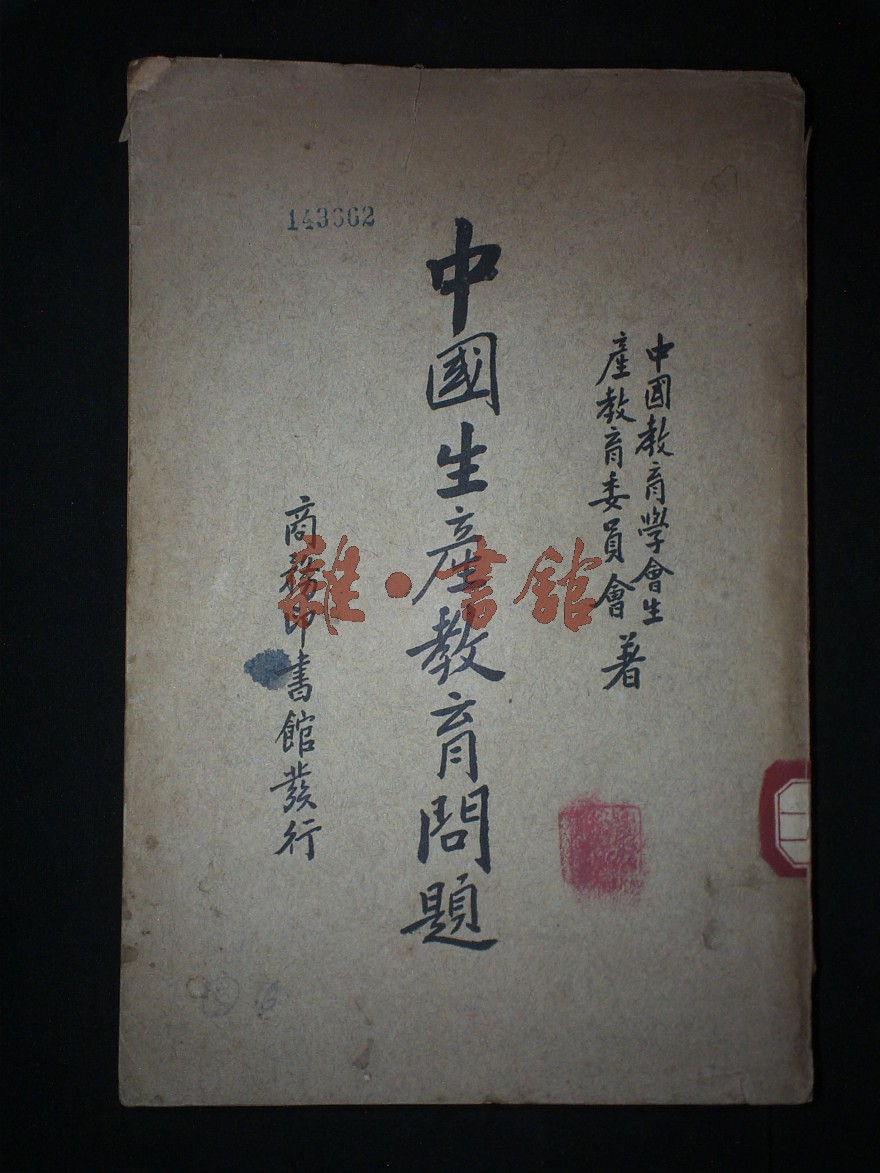 143662
中國教育學會生
產教育委員會 著
中國生產教育問題
商務印書館發行
雜·書館
6